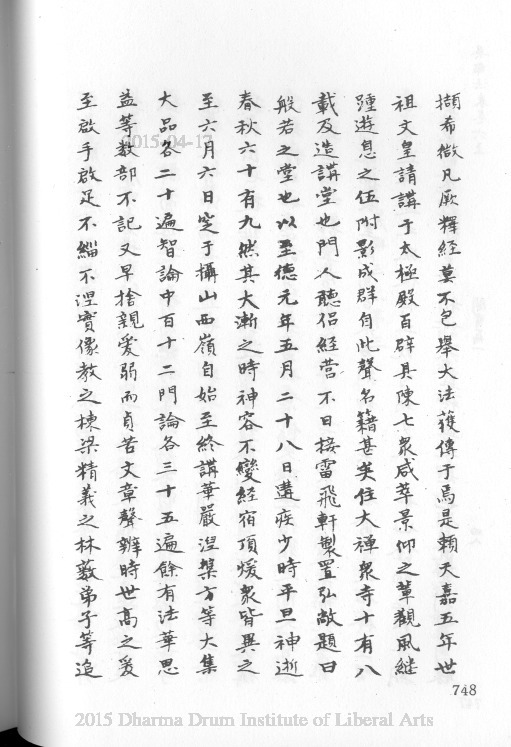 擷希微凡厥釋經莫不包舉大法獲傳于焉是賴天嘉五年世
祖文皇請講于太極殿百辟具陳七衆咸萃景仰之輩觀風継
踵遊息之伍附影成群自此聲名籍甚矣住大禪衆寺十有八
載及造講堂也門人聽侶経营不日接霤飛軒製置弘敞題曰
般若之堂也以至德元年五月二十八日遘疾少時平旦神逝
春秋六十有九然其大漸之時神容不變経宿頂煖衆皆異之
至六月六日窆于攝山西嶺自始至終講華嚴涅槃方等大集
大品各二十遍智論中百十二門論各三十五遍餘有法華思
益等数部不記又早捨親愛弱而貞苦文章聲辨時世高之爰
至啟手啟足不緇不涅實像教之棟梁精義之林薮弟子等追
748
2015-04-17
2015 Dharma Drum Institute of Liberal Arts